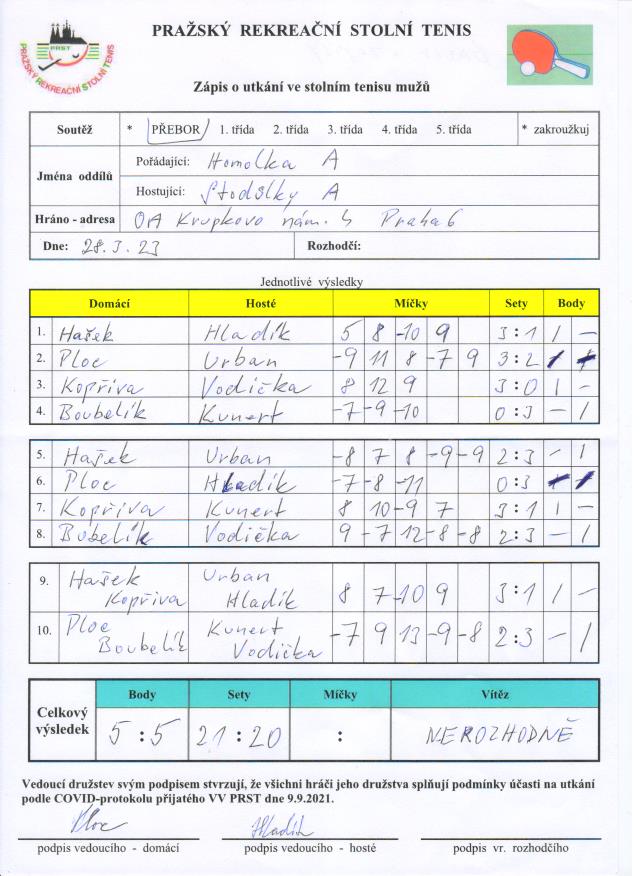 PRAŽSKÝ REKREAČNÍ STOLNÍ TENIS
PRST
PRAŽSKÝ REKREAČNÍ STOLNÍ TENIS
Zápis o utkání ve stolním tenisu mužů
Soutěž * PŘEBOR 1. třída 2. třída 3. třída 4. třída 5. třída * zakroužkuj
Jména oddílů
Pořádající: Homolka A
Hostující: Stodůlky A
Hráno - adresa OA Krupkovo nám. 4 Praha 6
Dne: 28. 3. 23 Rozhodčí:
Jednotlivé výsledky
Domácí Hosté Míčky Sety Body
1. Hašek Hladík 5 8 -10 9 3:1 1 -
2. Ploc Urban -9 11 8 -7 9 3:2 1
3. Kopřiva Vodička 8 12 9 3:0 1 -
4. Boubelík Kunert -7 -9 -10 0:3 - 1
5. Hašek Urban -8 7 8 -9 -9 2:3 - 1
6. Ploc Hladík -7 -8 -11 0:3 1
7. Kopřiva Kunert 8 10 -9 7 3:1 1 -
8. Bubelík Vodička 9 -7 12 -8 -8 2:3 - 1
9. Hašek Urban
Kopřiva Hladík 8 7 -10 9 3:1 1 -
10. Ploc Kunert
Boubelík Vodička -7 9 13 -9 -8 2:3 - 1
Celkový výsledek
Body Sety Míčky Vítěz
5:5 21:20 : NEROZHODNĚ
Vedoucí družstev svým podpisem stvrzují, že všichni hráči jeho družstva splňují podmínky účasti na utkání
podle COVID-protokolu přijatého VV PRST dne 9.9.2021.
Ploc Hladík
podpis vedoucího - domácí podpis vedoucího - hosté podpis vr. rozhodčího